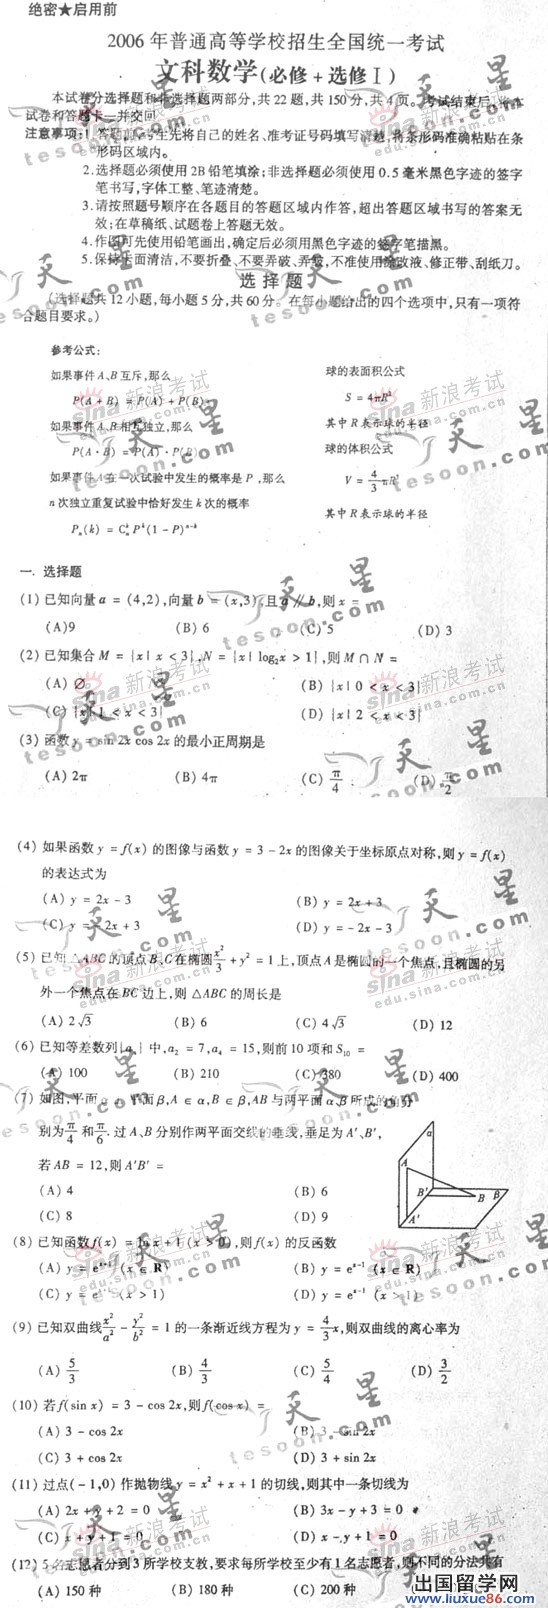 绝密★启用前
2006 年普通高等学校招生全国统一考试
文科数学(必修 + 选修 I )
本试卷分选择题和非选择题两部分,共 22 题,共 150 分,共 4 页。考试结束后,将本
试卷和答题卡一并交回
注意事项:1. 答题前,考生先将自己的姓名、准考证号码填写清楚,将条形码准确粘贴在条
形码区域内。
2. 选择题必须使用 2B 铅笔填涂;非选择题必须使用 0.5 毫米黑色字迹的签字
笔书写,字体工整、笔迹清楚。
3. 请按照题号顺序在各题目的答题区域内作答,超出答题区域书写的答案无
效;在草稿纸、试题卷上答题无效。
4. 作图可先使用铅笔画出,确定后必须用黑色字迹的签字笔描黑。
5. 保持卡面清洁,不要折叠、不要弄破、弄皱,不准使用涂改液、修正带、刮纸刀。
选 择 题
(选择题共 12 小题,每小题 5 分,共 60 分。在每小题给出的四个选项中,只有一项符
合题目要求。)
参考公式:
如果事件 A、B 互斥,那么 球的表面积公式
P(A + B) = P(A) + P(B) S = 4πR²
如果事件 A、B 相互独立,那么 其中 R 表示球的半径
P(A · B) = P(A) · P(B) 球的体积公式
如果事件 A 在一次试验中发生的概率是 P ,那么 V = 4/3 πR³
n 次独立重复试验中恰好发生 k 次的概率 其中 R 表示球的半径
Pₙ(k) = CₙᵏPᵏ(1 - P)ⁿ⁻ᵏ
一. 选择题
(1) 已知向量 a = (4,2),向量 b = (x,3),且 a // b,则 x =
(A)9 (B) 6 (C) 5 (D) 3
(2) 已知集合 M = {x | x < 3},N = {x | log₂x > 1},则 M ∩ N =
(A) ∅ (B) {x | 0 < x < 3}
(C) {x | 1 < x < 3} (D) {x | 2 < x < 3}
(3) 函数 y = sin 2x cos 2x 的最小正周期是
(A) 2π (B) 4π (C) π/4 (D) π/2
(4) 如果函数 y = f(x) 的图像与函数 y = 3 - 2x 的图像关于坐标原点对称,则 y = f(x)
的表达式为
(A) y = 2x - 3 (B) y = 2x + 3
(C) y = - 2x + 3 (D) y = - 2x - 3
(5) 已知 △ABC 的顶点 B、C 在椭圆 x²/3 + y² = 1 上,顶点 A 是椭圆的一个焦点,且椭圆的另
外一个焦点在 BC 边上,则 △ABC 的周长是
(A) 2√3 (B) 6 (C) 4√3 (D) 12
(6) 已知等差数列{aₙ} 中,a₂ = 7,a₄ = 15,则前 10 项和 S₁₀ =
(A) 100 (B) 210 (C) 380 (D) 400
(7) 如图,平面 α ⊥ 平面 β,A ∈ α,B ∈ β,AB 与两平面 α、β 所成的角分
别为 π/4 和 π/6. 过 A、B 分别作两平面交线的垂线,垂足为 A′、B′,
若 AB = 12,则 A′B′ =
(A) 4 (B) 6
(C) 8 (D) 9
α
A
B′
B
β
A′
(8) 已知函数 f(x) = ln x + 1 (x > 0),则 f(x) 的反函数
(A) y = eˣ⁺¹ (x ∈ R) (B) y = eˣ⁻¹ (x ∈ R)
(C) y = eˣ⁺¹ (x > 1) (D) y = eˣ⁻¹ (x > 1)
(9) 已知双曲线 x²/a² - y²/b² = 1 的一条渐近线方程为 y = 4/3 x,则双曲线的离心率为
(A) 5/3 (B) 4/3 (C) 5/4 (D) 3/2
(10) 若 f(sin x) = 3 - cos 2x,则 f(cos x) =
(A) 3 - cos 2x (B) 3 - sin 2x
(C) 3 + cos 2x (D) 3 + sin 2x
(11) 过点(- 1,0) 作抛物线 y = x² + x + 1 的切线,则其中一条切线为
(A) 2x + y + 2 = 0 (B) 3x - y + 3 = 0
(C) x + y + 1 = 0 (D) x - y + 1 = 0
(12) 5 名志愿者分到 3 所学校支教,要求每所学校至少有 1 名志愿者,则不同的分法共有
(A) 150 种 (B) 180 种 (C) 200 种
出国留学网
liuxue86.com